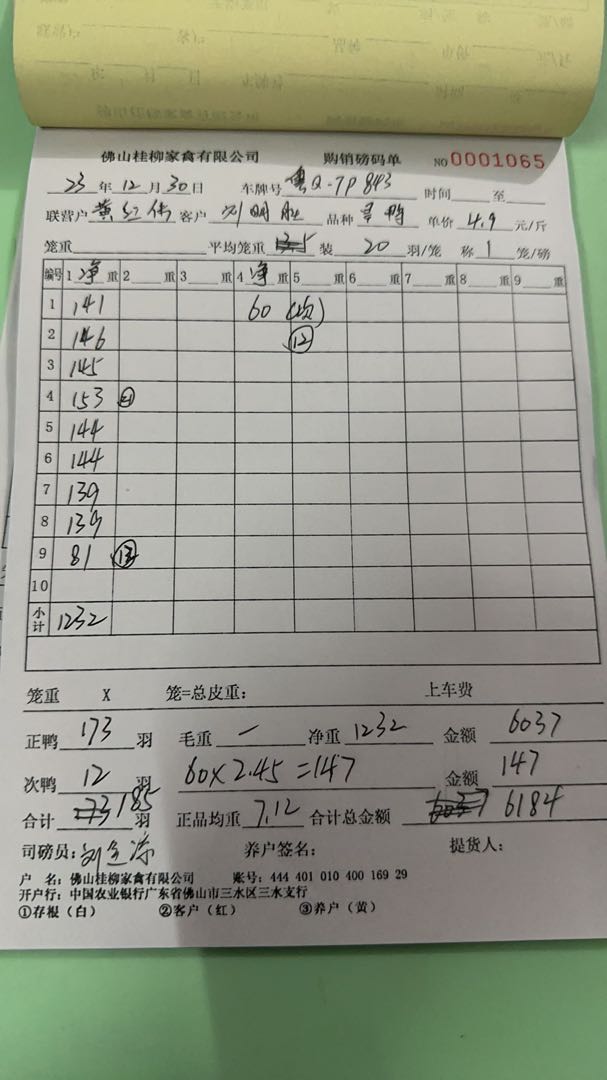 佛山桂柳家禽有限公司 购销磅码单 NO 0001065
23年12月30日 车牌号 粤Q-7P843 时间 至
联营户 黄红伟 客户 刘明胜 品种 鸭 单价 4.9 元/斤
笼重 平均笼重 装 20 羽/笼 称 1 笼/磅
编号 1 净 重 2 重 3 重 4 净 重 5 重 6 重 7 重 8 重 9 重
1 141 60 (次)
2 146 12
3 145
4 153 21
5 144
6 144
7 139
8 139
9 81 12
10
小计 1232
笼重 X 笼=总皮重: 上车费
正鸭 173 羽 毛重 一 净重 1232 金额 6037
次鸭 12 羽 60×2.45=147 金额 147
合计 185 羽 正品均重 7.12 合计总金额 6184
司磅员: 养户签名: 提货人:
户 名: 佛山桂柳家禽有限公司 账号: 444 401 010 400 169 29
开户行: 中国农业银行广东省佛山市三水区三水支行
①存根（白） ②客户（红） ③养户（黄）